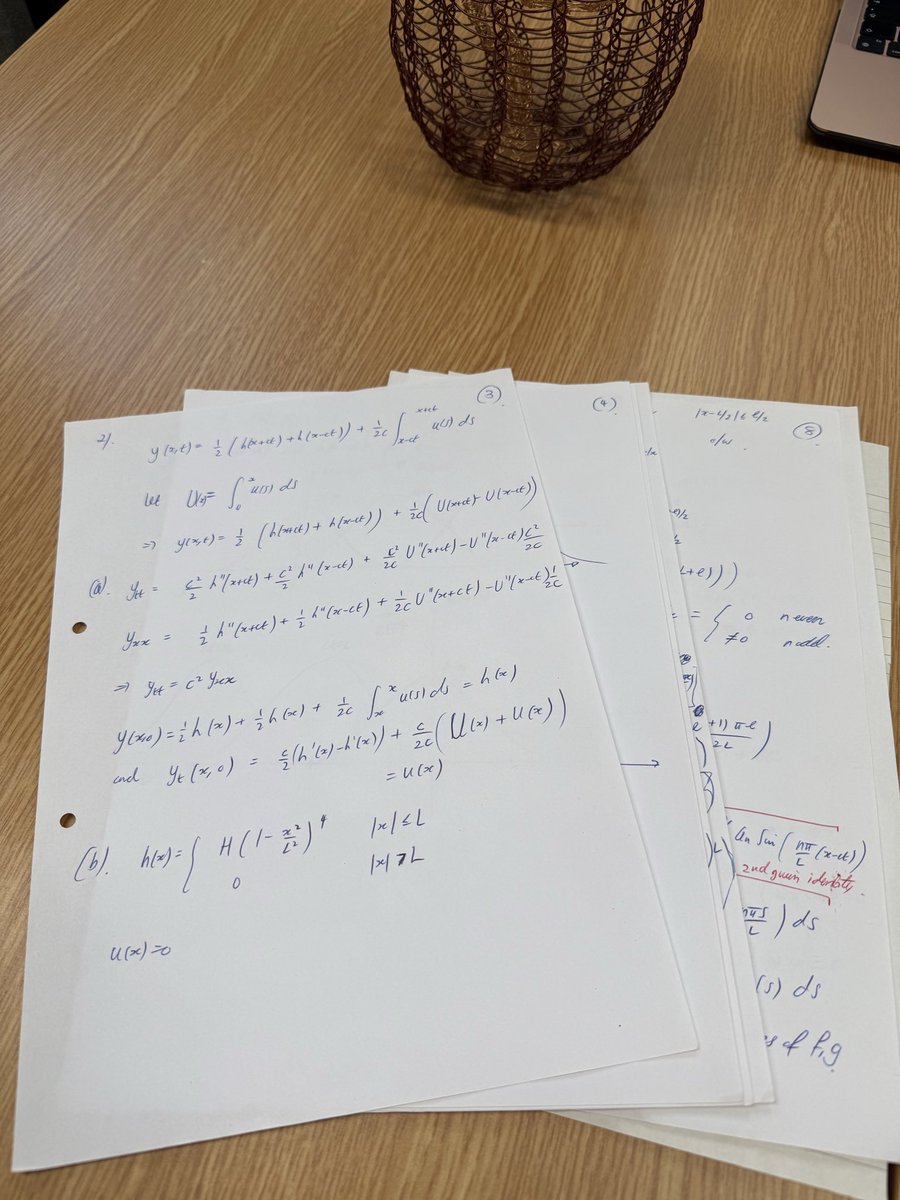 ③
2).
y(x,t) = 1/2 (h(x+ct) + h(x-ct)) + 1/2c ∫_{x-ct}^{x+ct} u(s) ds
let U(x) = ∫_0^x u(s) ds
⇒ y(x,t) = 1/2 (h(x+ct) + h(x-ct)) + 1/2c (U(x+ct) - U(x-ct))
(a). y_tt = c²/2 h''(x+ct) + c²/2 h''(x-ct) + c²/2c U''(x+ct) - U''(x-ct) c²/2c
y_xx = 1/2 h''(x+ct) + 1/2 h''(x-ct) + 1/2c U''(x+ct) - U''(x-ct) 1/2c
⇒ y_tt = c² y_xx
y(x,0) = 1/2 h(x) + 1/2 h(x) + 1/2c ∫_x^x u(s) ds = h(x)
and y_t(x,0) = c/2 (h'(x) - h'(x)) + c/2c (U(x) + U(x))
= u(x)
(b). h(x) = { H(1 - x²/L²)^4 |x| ≤ L
0 |x| > L
u(x) = 0
④
⑧
o/w
= { 0 n even
≠0 n odd.
an Sin(nπ/L (x-ct))
2nd given identity
) ds
(s) ds
of f, g